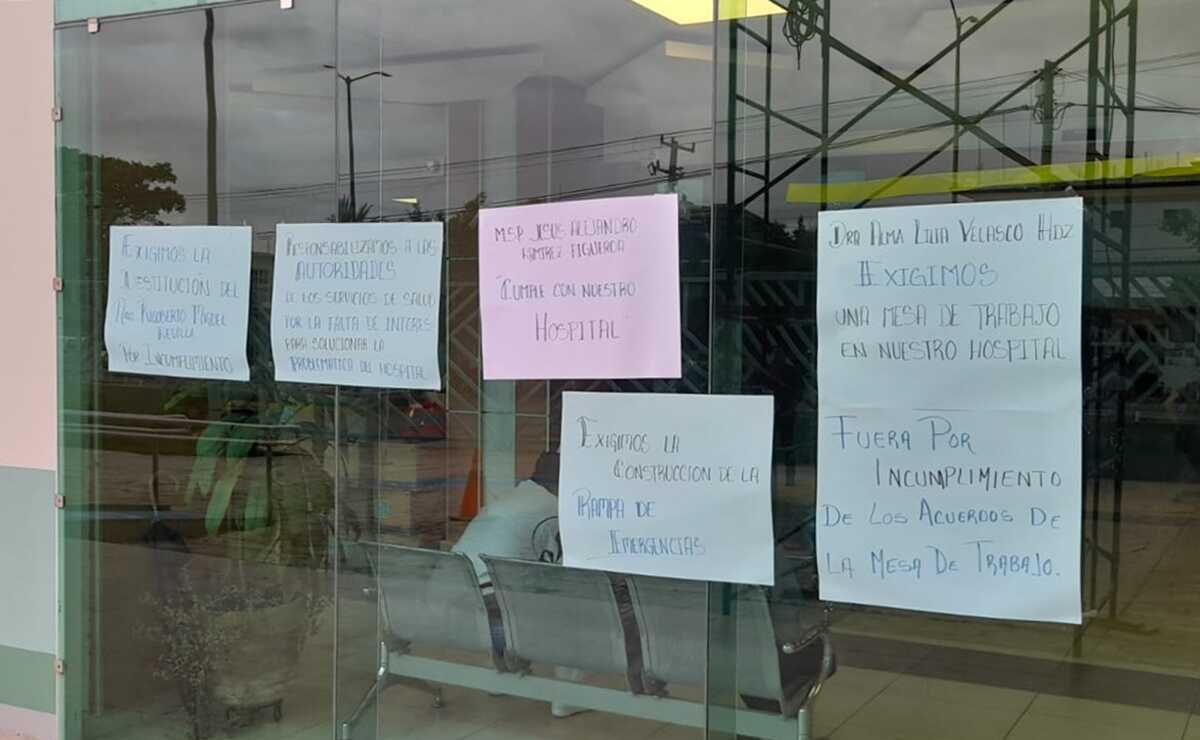 EXIGIMOS LA
DESTITUCIÓN DEL
RIGOBERTO
POR INCUMPLIMIENTO
RESPONSABILIZAMOS A LAS
AUTORIDADES
DE LOS SERVICIOS DE SALUD
POR LA FALTA DE INTERES
PARA SOLUCIONAR LA
PROBLEMATICA DEL HOSPITAL
M.S.P. JESUS ALEJANDRO
RAMIREZ FIGUEROA
"CUMPLE CON NUESTRO
HOSPITAL"
EXIGIMOS LA
CONSTRUCCION DE LA
RAMPA DE
EMERGENCIAS
DRA ALMA LILIA VELASCO HDZ
EXIGIMOS
UNA MESA DE TRABAJO
EN NUESTRO HOSPITAL
FUERA POR
INCUMPLIMIENTO
DE LOS ACUERDOS DE
LA MESA DE TRABAJO.